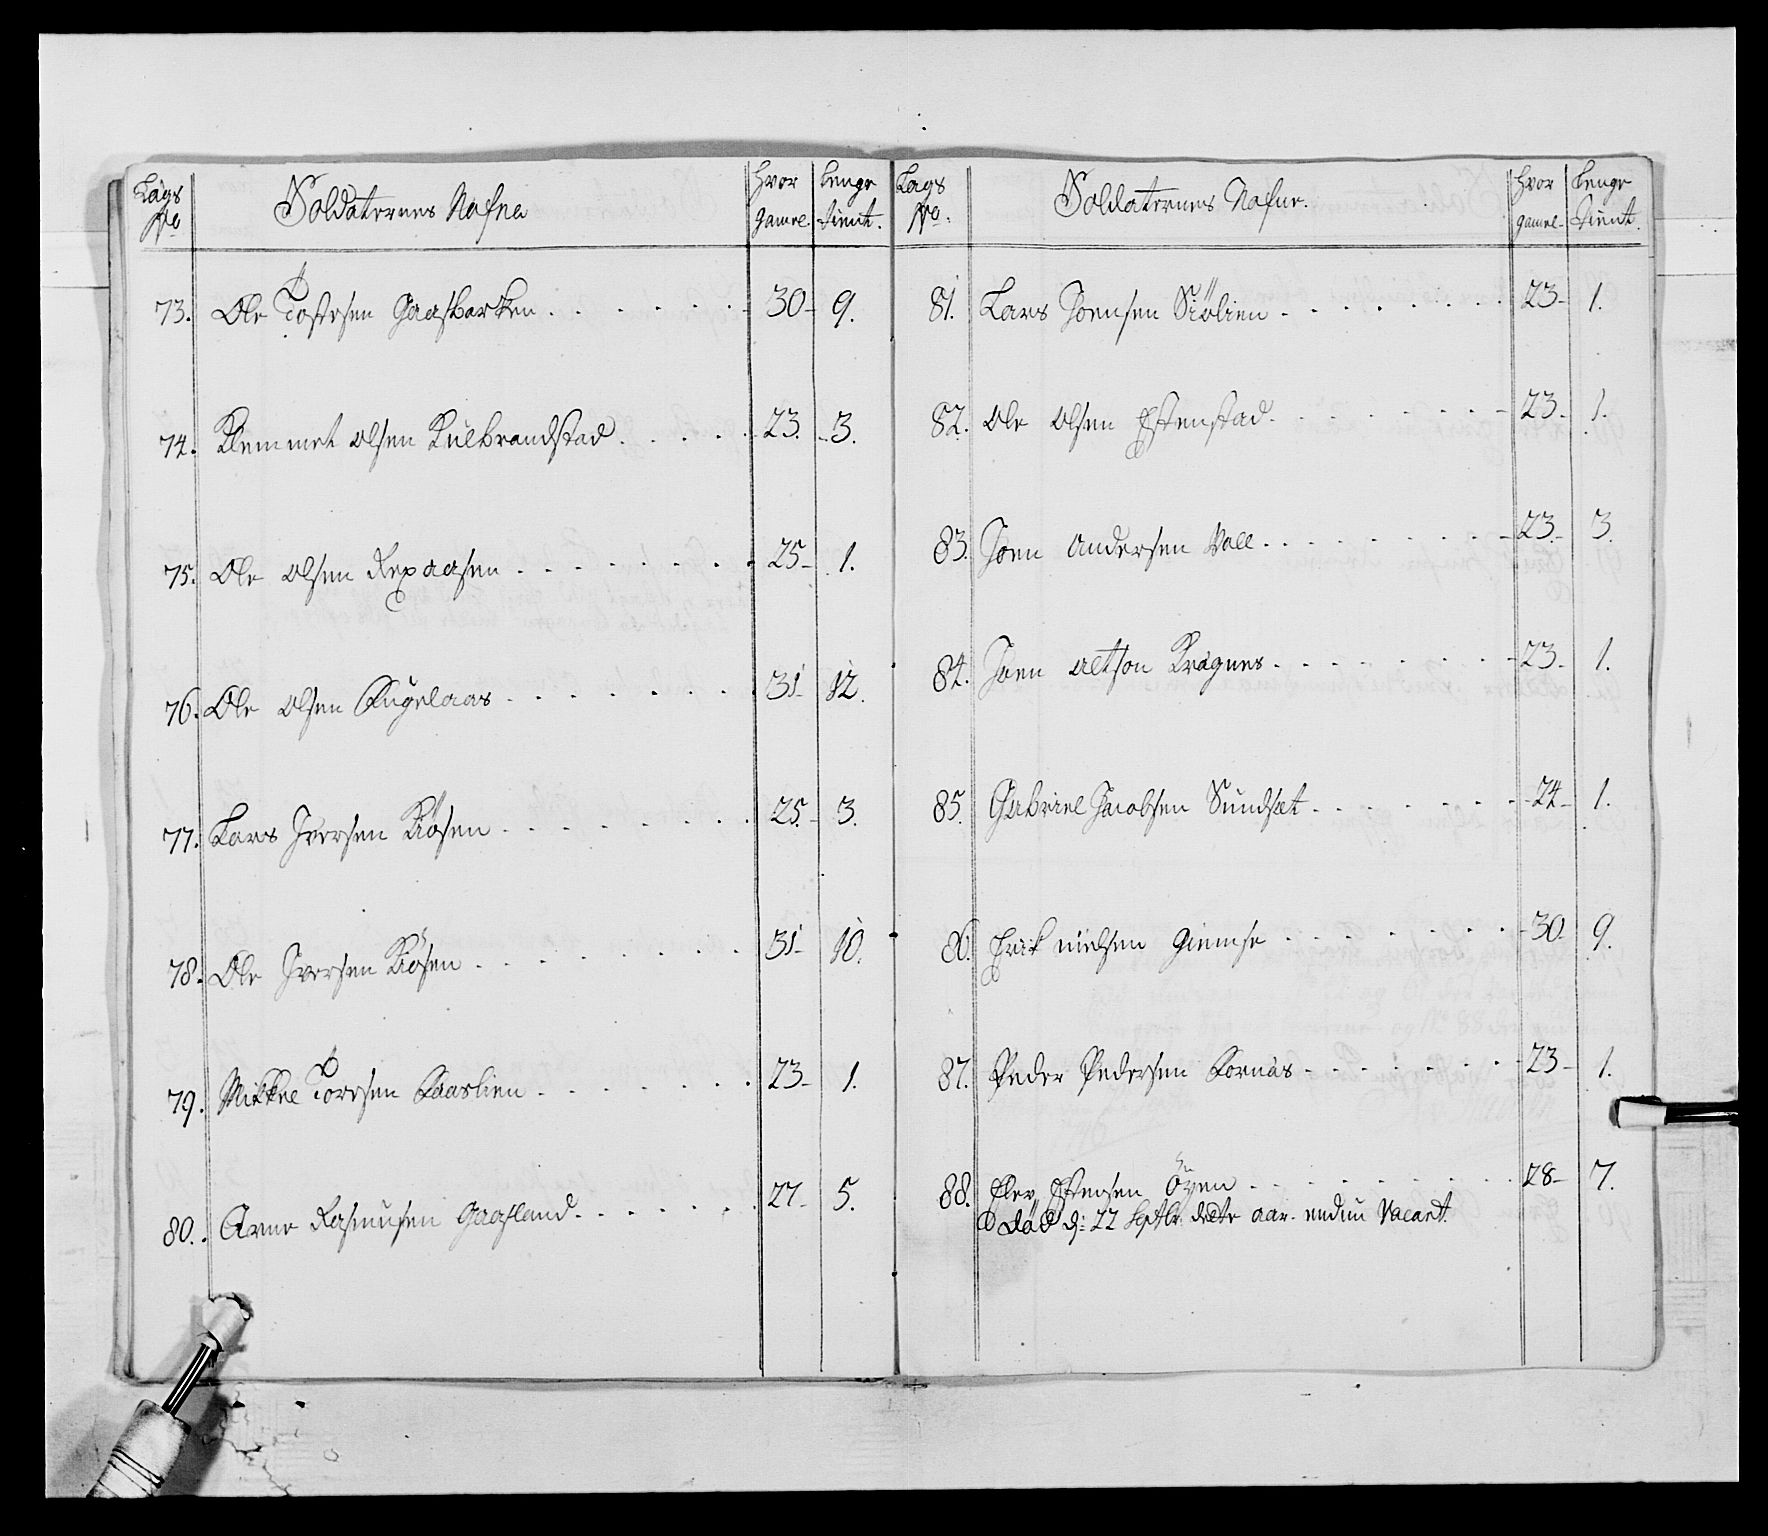 Lægs No | Soldaternes Nafne | hvor gamel. | lenge tient.
73. Ole Tostesen Gaasbakken . . . . . . 30 - 9.
74. Klemmet olsen Kulbrandstad . . . . . 23. - 3.
75. Ole olsen Repaasen . . . . . . . . 25 - 1.
76. Ole olsen Kugelaas . . . . . . . . 31 - 12.
77. Lars Iversen Kiösen . . . . . . . . 25 - 3.
78. Ole Iversen Kiösen . . . . . . . . 31 - 10.
79. Mikkel Toresen Kaaslien . . . . . . . 23 - 1.
80. Arne Rasmusen Gaasland . . . . . . . 27 - 5.
Lægs No. | Soldaternes Nafne. | hvor gamel - | lenge tient.
81. Lars Joensen Siölien . . . . . . . . 23 - 1.
82. Ole olsen Estenstad . . . . . . . . 23 - 1.
83. Joen andersen Voll . . . . . . . . 23 - 3.
84. Joen altson Kragnes . . . . . . . . 23 - 1.
85. Gabriel Jacobsen Sundset . . . . . . . 24 - 1.
86. Erik nielsen Giemse . . . . . . . . 30 - 9.
87. Peder Pedersen Kornæs . . . . . . . 23 - 1.
88. Elev Estensen öyen . . . . . . . . 28 - 7.
död d: 22 Septbr: dette aar. endnu Vacant.